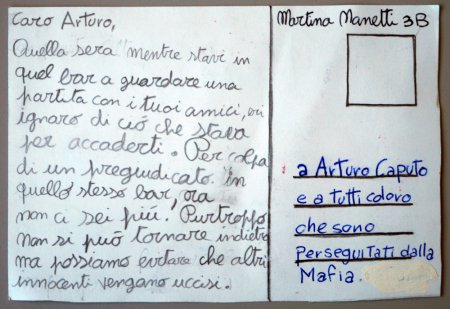 Caro Arturo,
Quella sera mentre stavi in
quel bar a guardare una
partita con i tuoi amici, eri
ignaro di ciò che stava
per accaderti. Per colpa
di un pregiudicato in
quello stesso bar, ora
non ci sei più. Purtroppo
non si può tornare indietro
ma possiamo evitare che altri
innocenti vengano uccisi.
Martina Manetti 3B
a Arturo Caputo
e a tutti coloro
che sono
perseguitati dalla
Mafia.